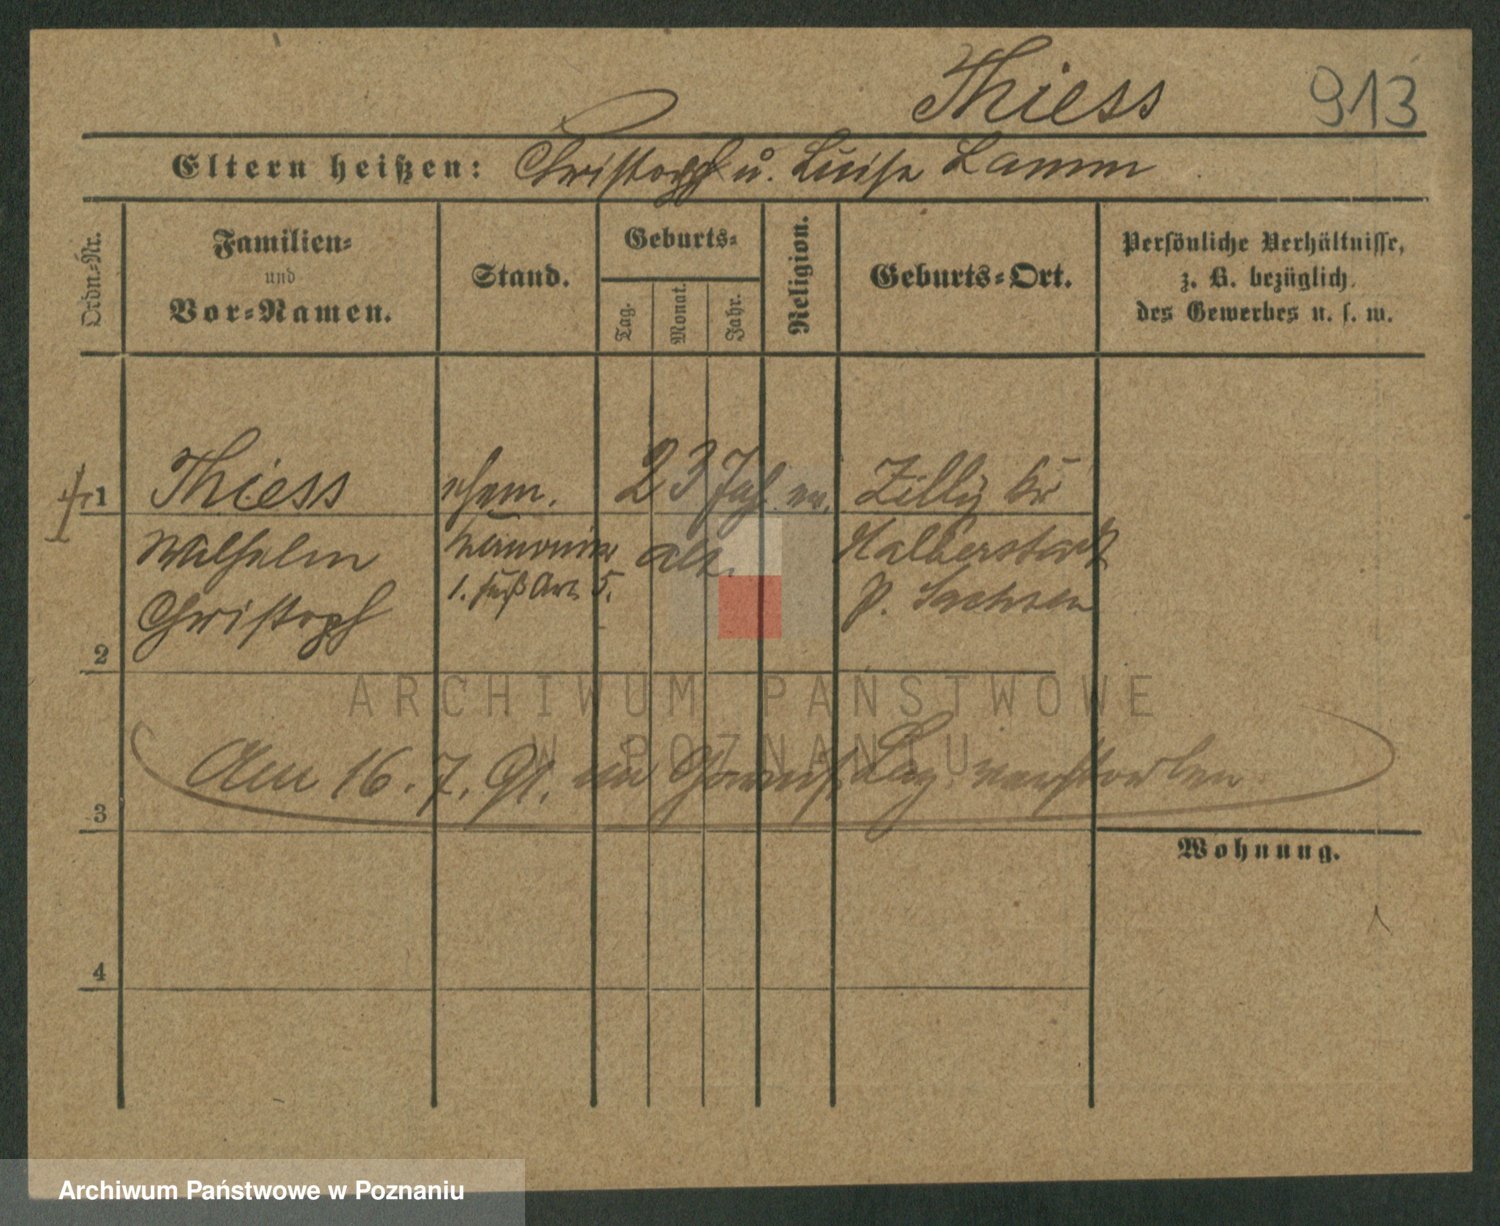 Thiess 913
Eltern heißen: Christoph u. Luise Lamm
Ordn=Nr.
Familien=
und
Vor=Namen.
Stand.
Geburts=
Tag.
Monat.
Jahr.
Religion.
Geburts=Ort.
Persönliche Verhältnisse,
z. B. bezüglich
des Gewerbes u. s. w.
1 Thiess ehem. 23 Jah. ev. Zilly Kr
Wilhelm Kanonier alt. Halberstadt
Christoph 1. Fuß Art. 5. P. Sachsen
2
ARCHIWUM PAŃSTWOWE
W POZNANIU
Am 16. 7. 91. im Garnis. Laz. verstorben
3
Wohnung.
4
Archiwum Państwowe w Poznaniu